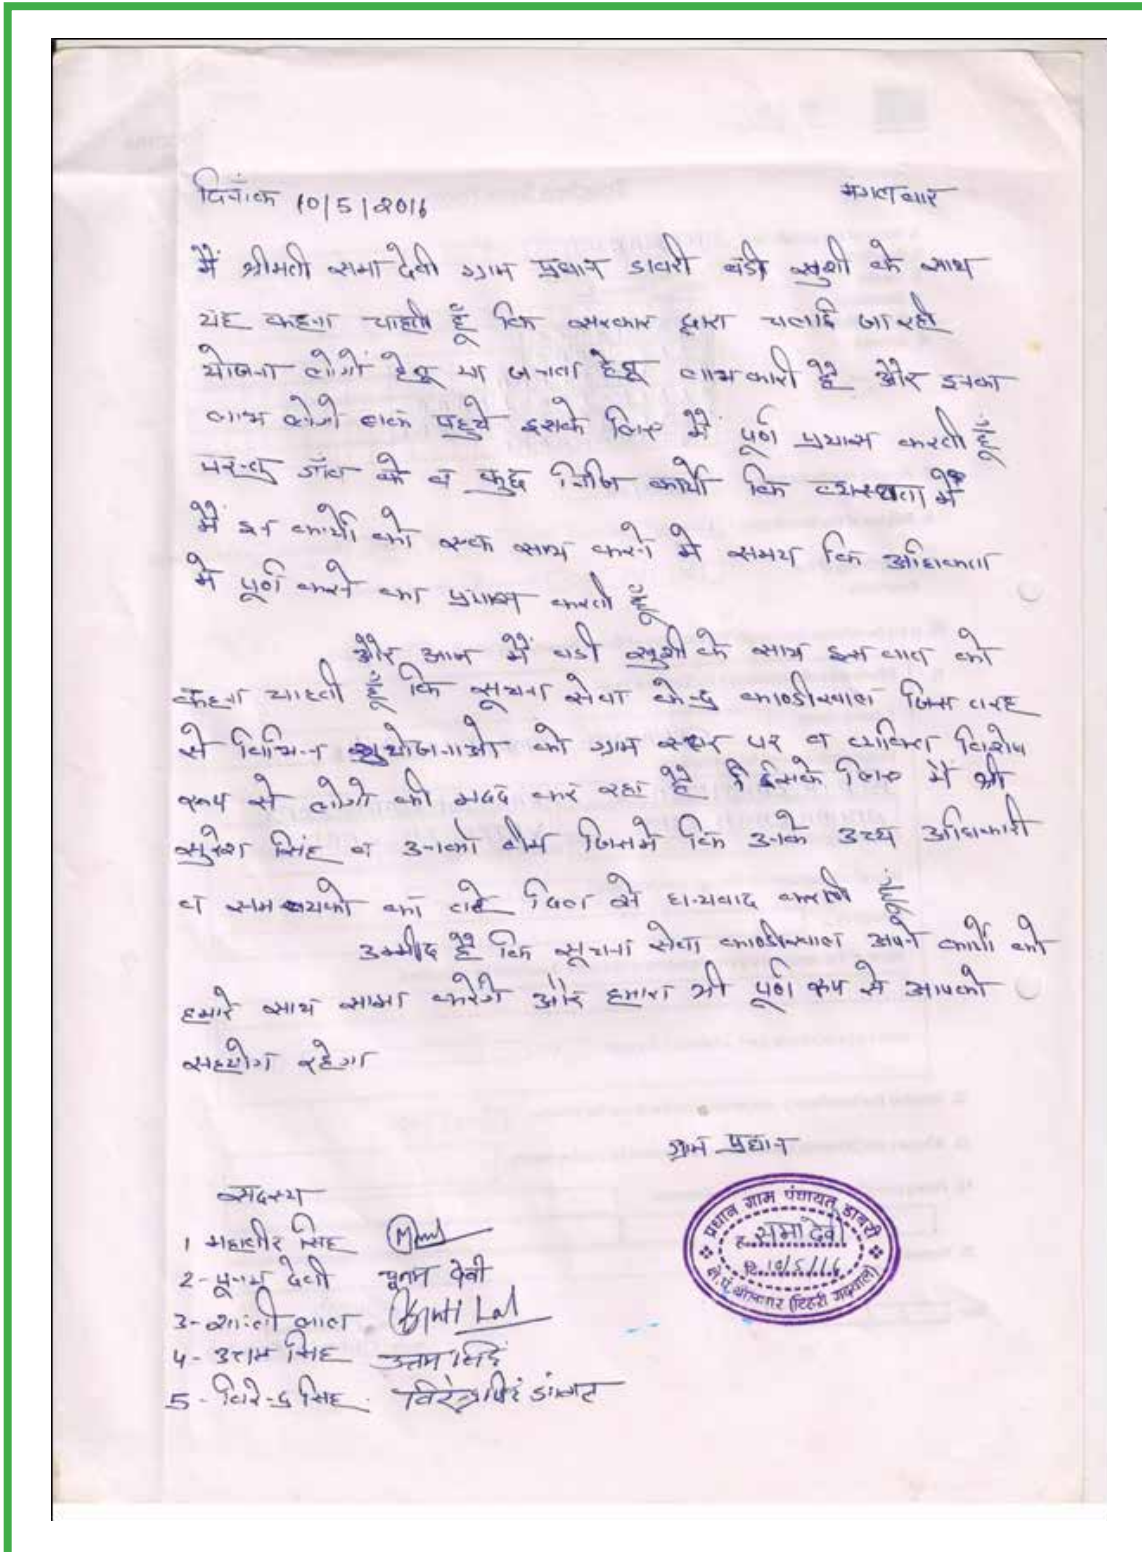 दिनांक 10/5/2016 मंगलवार
मैं श्रीमती समा देवी ग्राम प्रधान डाबरी बडी खुशी के साथ
यह कहना चाहती हूँ कि सरकार द्वारा चलाई जा रही
योजना लोगों हेतू या जनता हेतू लाभकारी है और इनका
लाभ लोगो तक पहुचे इसके लिए मैं पूर्ण प्रयास करती हूँ
परन्तु गाँव के व कुछ निजि कार्यो कि व्यस्थता में
मैं इन कार्यो को एक साथ करने मे समय कि अधिकता
मे पूर्ण करने का प्रयास करती हूँ
और आज मैं बडी खुशी के साथ इस बात को
कहना चाहती हूँ कि सूचना सेवा केन्द्र काण्डीखाल जिस तरह
से विभिन्न सुयोजनाओ को ग्राम स्तर पर व व्यक्ति विशेष
रूप से लोगो की मदद कर रहा है इसके लिए मैं श्री
सुरेश सिंह व उनकी टीम जिसमे कि उनके उच्च अधिकारी
व समन्वयको का तहे दिल से धन्यवाद करती हूँ
उम्मीद है कि सूचना सेवा काण्डीखाल अपने कार्यो को
हमारे साथ साझा करेगे और हमारा भी पूर्ण रूप से आपको
सहयोग रहेगा
ग्राम प्रधान
प्रधान ग्राम पंचायत डाबरी
ह. समा देवी
दि. 10/5/16
क्षे.पं. थौलधार (टिहरी गढ़वाल)
सदस्य
1 महावीर सिंह
2- पूनम देवी पूनम देवी
3- शान्ती लाल Shanti Lal
4- उत्तम सिंह उत्तम सिंह
5- विरेन्द्र सिंह विरेन्द्र सिंह